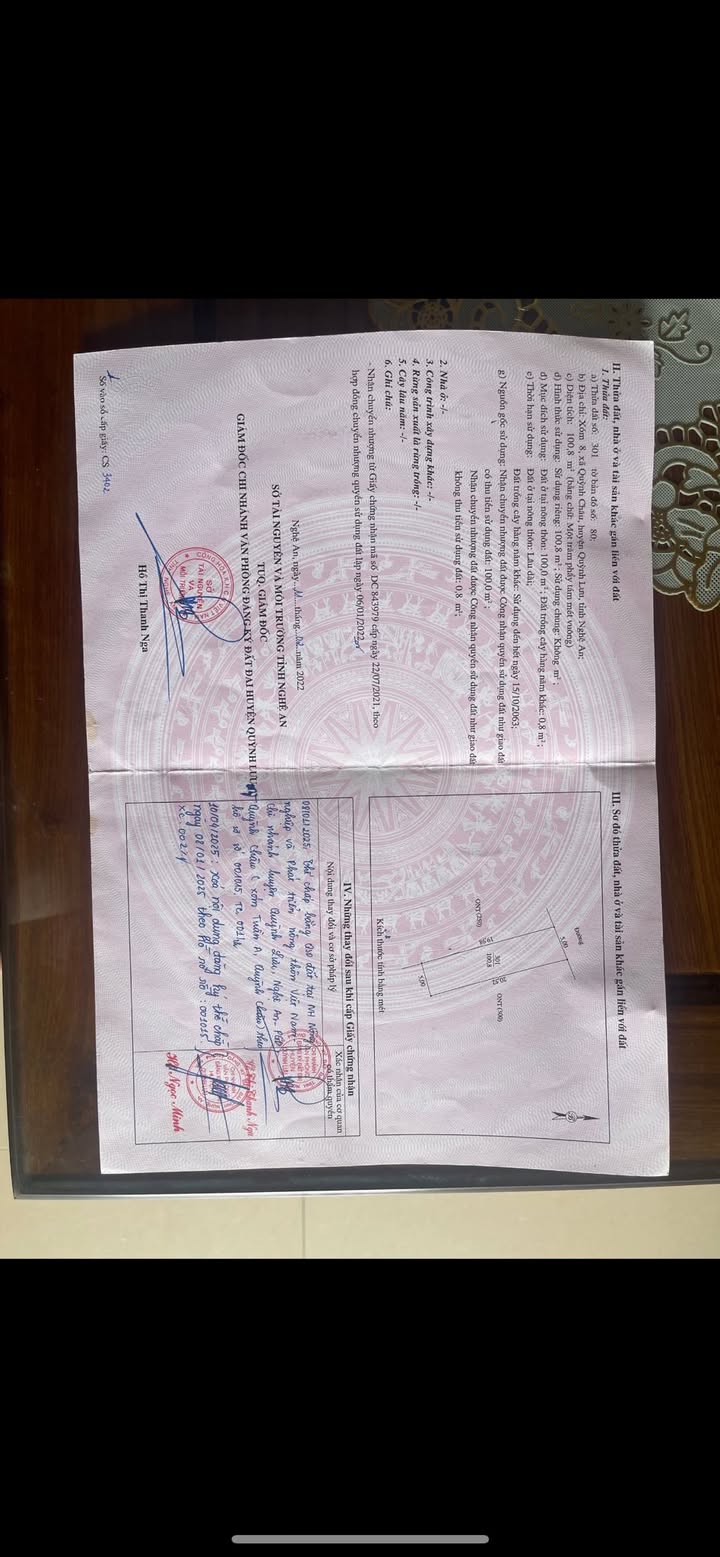 II. Thửa đất, nhà ở và tài sản khác gắn liền với đất
1. Thửa đất:
a) Thửa đất số: 301 tờ bản đồ số: 80;
b) Địa chỉ: Xóm 8, xã Quỳnh Châu, huyện Quỳnh Lưu, tỉnh Nghệ An;
c) Diện tích: 100,8 m² (bằng chữ: Một trăm phẩy tám mét vuông)
d) Hình thức sử dụng: Sử dụng riêng: 100,8 m²; Sử dụng chung: Không m²;
đ) Mục đích sử dụng: Đất ở tại nông thôn: 100,0 m²; Đất trồng cây hàng năm khác: 0,8 m²;
e) Thời hạn sử dụng: Đất ở tại nông thôn: Lâu dài;
Đất trồng cây hàng năm khác: Sử dụng đến hết ngày 15/10/2063;
g) Nguồn gốc sử dụng: Nhận chuyển nhượng đất được Công nhận quyền sử dụng đất như giao đất
có thu tiền sử dụng đất: 100,0 m²;
Nhận chuyển nhượng đất được Công nhận quyền sử dụng đất như giao đất
không thu tiền sử dụng đất: 0,8 m²;
2. Nhà ở: -/-
3. Công trình xây dựng khác: -/-
4. Rừng sản xuất là rừng trồng: -/-
5. Cây lâu năm: -/-
6. Ghi chú:
- Nhận chuyển nhượng từ Giấy chứng nhận mã số DC 843979 cấp ngày 22/07/2021, theo
hợp đồng chuyển nhượng quyền sử dụng đất lập ngày 06/01/2022
Nghệ An, ngày tháng năm 2022
SỞ TÀI NGUYÊN VÀ MÔI TRƯỜNG TỈNH NGHỆ AN
TUQ. GIÁM ĐỐC
GIÁM ĐỐC CHI NHÁNH VĂN PHÒNG ĐĂNG KÝ ĐẤT ĐAI HUYỆN QUỲNH LƯU
SỞ
TÀI NGUYÊN
VÀ
MÔI TRƯỜNG
Hồ Thị Thanh Nga
Số vào sổ cấp giấy: CS 3402
III. Sơ đồ thửa đất, nhà ở và tài sản khác gắn liền với đất
Đường
5.00
ONT(280)
301
100.8
ONT(300)
5.00
Kích thước tính bằng mét
IV. Những thay đổi sau khi cấp Giấy chứng nhận
Nội dung thay đổi và cơ sở pháp lý
Xác nhận của cơ quan
có thẩm quyền
08/01/2025: Thế chấp bằng QSD đất tại NH Nông
nghiệp và Phát triển nông thôn Việt Nam
chi nhánh huyện Quỳnh Lưu, Nghệ An- PGD
Quỳnh Châu ( xóm Tuần A, Quỳnh Châu) theo
hồ sơ số 001015.TC.
10/04/2025: Xóa nội dung đăng ký thế chấp
ngày 08/01/2025 theo Hồ sơ số: 001015.
Hồ Thị Thanh Nga
Ngọc Minh